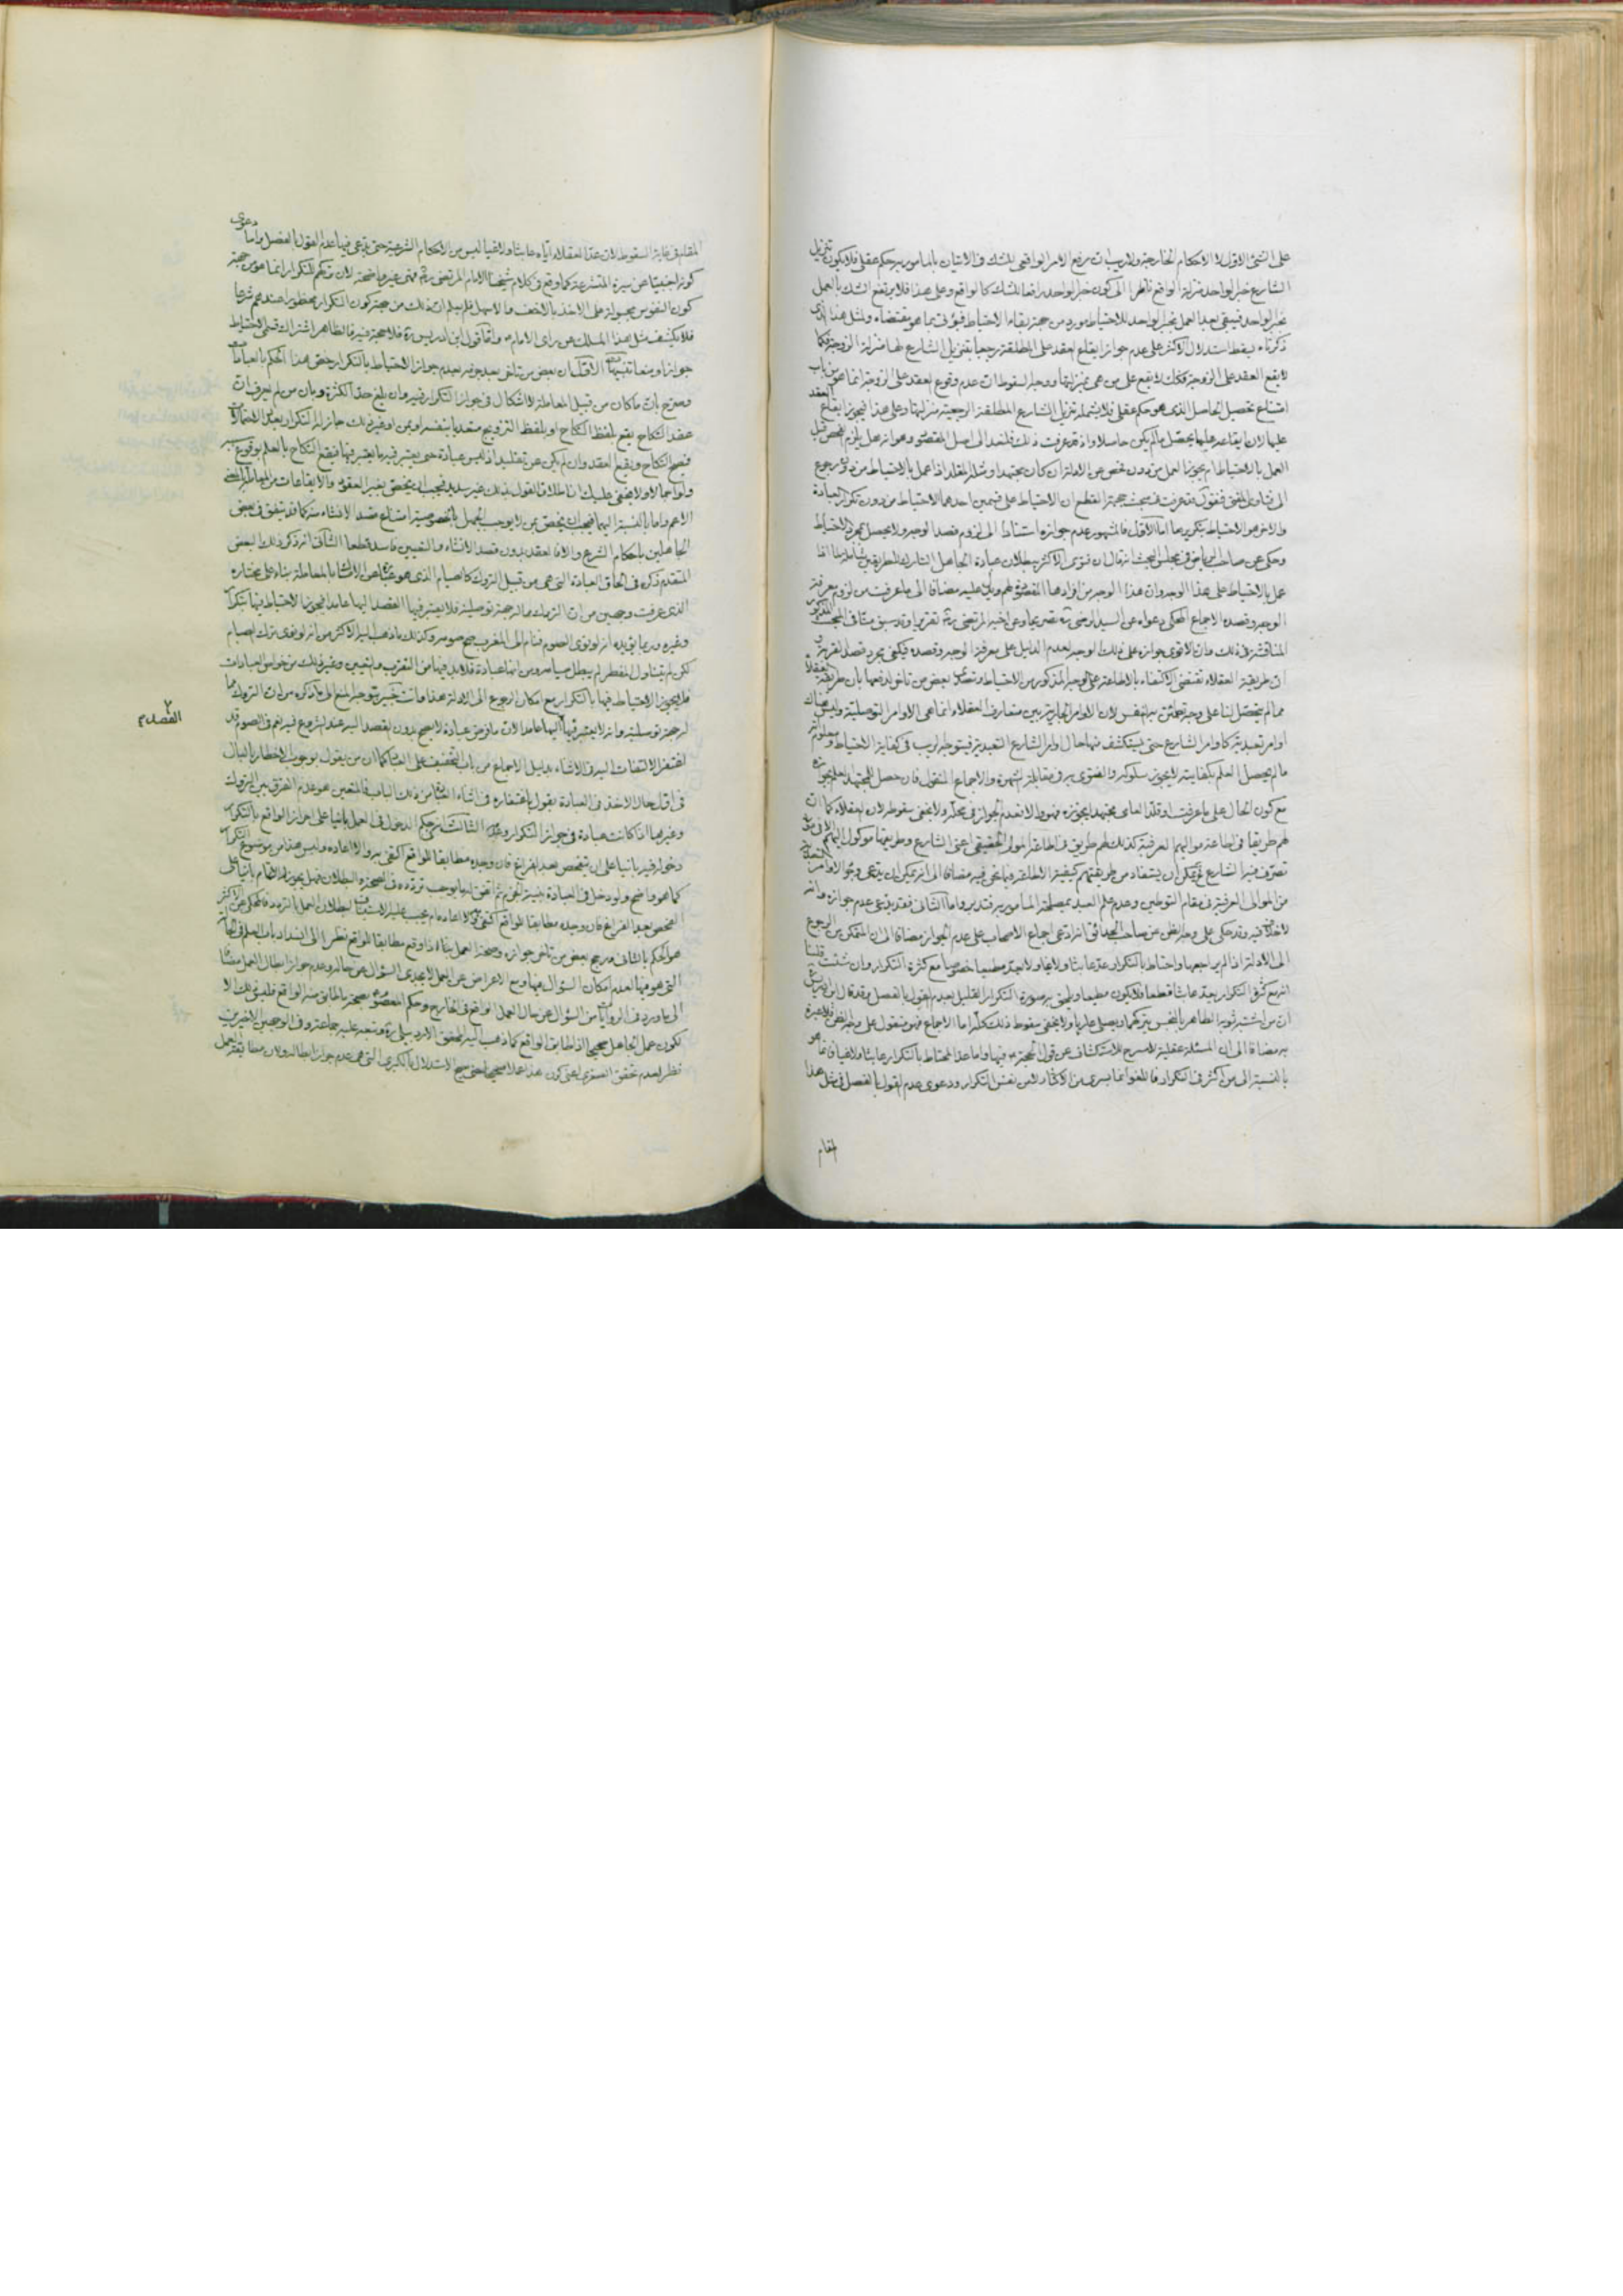 على الشئ الاول لا الاحكام الخارجية ولاريب ان رفع الامر الواقعى بالشك فى الاتيان بالمامور به حكم عقلى فلا يكون تنزيل
الشارع خبر الواحد منزلة الواقع ناظرا الى كون خبر الواحد رافعا للشك كالواقع وعلى هذا فلا يرتفع الشك بالعمل
بخبر الواحد فيبقى بعد العمل بخبر الواحد للاحتياط مورد من جهة بقاء الاحتياط فيؤتى بما هو مقتضاه ولمثل هذا الذى
ذكرناه يسقط استدلال الاكثر على عدم جواز ايقاع العقد على المطلقة رجعيا بتنزيل الشارع لها منزلة الزوجة فكما
لا يقع العقد على الزوجة فكذلك لا يقع على من هى بمنزلتها ووجه السقوط ان عدم وقوع العقد على الزوجة انما هو من باب
امتناع تحصيل الحاصل الذى هو حكم عقلى فلا يشمله تنزيل الشارع المطلقة الرجعية منزلتها وعلى هذا فيجوز ايقاع العقد
عليها لان ايقاعه عليها يحصل مالم يكن حاصلا واذ قد عرفت ذلك فلنعد الى اصل المقصود وهو انه هل يلزم الفحص قبل
العمل بالاحتياط ام يجوز العمل من دون فحص عن الادلة ان كان مجتهدا ومثله المقلد اذا عمل بالاحتياط من دون رجوع
الى فتاوى المفتى فنقول قد عرفت فى مبحث حجية القطع ان الاحتياط على قسمين احدهما الاحتياط من دون تكرار العبادة
والاخر هو الاحتياط بتكريرها اما الاول فالمشهور عدم جوازه استنادا الى لزوم قصد الوجه ولا يحصل بمجرد الاحتياط
وحكى عن صاحب الرياض فى مجلس البحث انه قال ان فتوى الاكثر ببطلان عبادة الجاهل التارك للطريقين شاملة لما اذا
عمل بالاحتياط على هذا الوجه وان هذا الوجه من افراد هذا المقصود لهم ويدل عليه مضافا الى ما عرفت من لزوم معرفة
الوجه وقصده الاجماع المحكى دعواه عن السيد الرضى ره تصريحا وعن اخيه المرتضى ره تقريرا وقد سبق منا فى المبحث المذكور
المناقشة فى ذلك وان الاقوى جوازه على ذلك الوجه لعدم الدليل على معرفة الوجه وقصده فيكفى مجرد قصد القربة
ان طريقة العقلاء تقتضى الاكتفاء بالاطاعة على الوجه المذكور من الاحتياط وتصدى بعض من تاخر لدفعها بان طريقة العقلاء
مما لم يتحصل لنا على وجه تطمئن به النفس لان الاوامر الجارية بين متعارف العقلاء انما هى الاوامر التوصلية وليس هناك
اوامر تعبدية كاوامر الشارع حتى يستكشف منها حال اوامر الشارع التعبدية فيتوجه الريب فى كفاية الاحتياط ومعلوم انه
مالم يحصل العلم بكفايته لا يجوز سلوكه والفتوى به فى مقابلة الشهرة والاجماع المنقول فان حصل للمجتهد العلم بجوازه
مع كون الحال على ما عرفت او قلد العامى مجتهدا يجوزه فهو والا فعدم الجواز فى محله ولا يخفى سقوطه لان العقلاء كما ان
لهم طريقا فى اطاعة مواليهم العرفية كذلك لهم طريق فى اطاعة المولى الحقيقى اعنى الشارع وطريقها موكول اليهم
تصرف فيه الشارع فيمكن ان يستفاد من طريقتهم كيفية الاطاعة فيما نحن فيه مضافا الى انه يمكن ان يدعى وجود الاوامر التعبدية
من الموالى العرفية فى مقام التوطين وعدم علم العبد بمصلحة المأمور به فتدبر واما الثانى فقد يدعى عدم جوازه وانه
لا خلاف فيه وقد حكى على وجه الظن عن صاحب الحدائق انه ادعى اجماع الاصحاب على عدم الجواز مضافا الى ان المتمكن من الرجوع
الى الادلة اذا لم يراجعها واحتاط بالتكرار عد عابثا ولاغيا ولا يعد مطيعا خصوصا مع كثرة التكرار وان شئت قلت
انه مع كثرة التكرار يعد عابثا قطعا فلا يكون مطيعا ويلحق به صورة التكرار القليل بعدم القول بالفصل وقد قال ابن ادريس ره
ان من اشتبه ثوبه الطاهر بالنجس يتركهما ويصلى عاريا ولا يخفى سقوط ذلك كله اما الاجماع فهو منقول على وجه الظن فلا عبرة
به مضافا الى ان المسئلة عقلية لا مسرح للاستكشاف عن قول الحجة فيها واما عد المحتاط بالتكرار عابثا ولاغيا فانما هو
بالنسبة الى من اكثر فى التكرار فاللغو انما يسرى من الاكثار لا من نفس التكرار ودعوى عدم القول بالفصل فى مثل هذا
المقام
المقام فى غاية السقوط لان عد العقلاء اياه عابثا ولاغيا ليس من الاحكام الشرعية حتى يدعى فيها عدم القول بالفصل واما دعوى
كونه اجنبيا عن سيرة المتشرعة كما وقع فى كلام شيخنا الامام المرتضى ره فهى غير واضحة لان تركهم للتكرار انما هو من جهة
كون النفوس مجبولة على الاخذ بالاخف والاسهل فلم يعلم ان ذلك من جهة كون التكرار محظورا عندهم شرعا
فلا يكشف مثل هذا المسلك عن راى الامام ع واما قول ابن ادريس ره فلا حجة فيه فالظاهر اشتراك قسمى الاحتياط
جوازا ومنعا تنبيهات الاول ان بعض من تاخر بعد جزمه بعدم جواز الاحتياط بالتكرار خص هذا الحكم بالعبادات
وصرح بان ما كان من قبيل المعاملة لا اشكال فى جواز التكرار فيه وان بلغ حد الكثرة وبان من لم يعرف ان
عقد النكاح يقع بلفظ النكاح او بلفظ التزويج متعديا بنفسه او بمن او غير ذلك جاز له التكرار بعد
فيصح النكاح ويقع العقد وان لم يكن عن تقليد اذ ليس عبادة حتى يعتبر فيه ما يعتبر فيها فيقع النكاح بالعلم بوقوع سببه
ولو اجمالا ولا يخفى عليك ان اطلاق القول بذلك غير سديد فيجب ان يخص بغير العقود والايقاعات من المعاملة بالمعنى
الاعم واما بالنسبة اليهما فيجب ان يخص بمن لا يوجب الجهل بالخصوصية امتناع قصد الانشاء منه كما قد يتفق فى بعض
الجاهلين باحكام الشرع والا فالعقد بدون قصد الانشاء والتعيين فاسد قطعا الثانى انه ذكر ذلك البعض
المتقدم ذكره فى الحاق العبادة التى هى من قبيل التروك كالصيام الذى هو عبارة عن الامساك بالمعاملة بناء على مختاره
الذى عرفت وجهين من ان التروك لها جهة توصلية فلا يعتبر فيها القصد اليها عامدا فيجوز الاحتياط فيها بتكرار
وغيره وربما يؤيده انه لو نوى الصوم فنام الى المغرب صح صومه وكذلك ما ذهب اليه الاكثر من انه لو نوى ترك الصيام
لكن لم يتناول المفطر لم يبطل صيامه ومن انها عبادة فلا بد فيها من التقرب والتعيين وغير ذلك من خواص العبادات
فلا يجوز الاحتياط فيها بالتكرار مع امكان الرجوع الى الادلة هذا وانت خبير بتوجه المنع الى ما ذكره من ان التروك مما
له جهة توصلية وانه لا يعتبر فيها القصد اليها عامدا لان ما فرض عبادة لا يصح بدون القصد اليه عند الشروع فيه نعم فى الصوم قد
اغتفر الالتفات اليه فى الاثناء بدليل الاجماع من باب التخفيف على العباد كما ان من يقول بوجوب الاخطار بالبال
فى اول حال الاخذ فى العبادة يقول باغتفاره فى اثناء العبادة من ذلك الباب فالمتعين هو عدم الفرق بين التروك
وغيرها اذا كانت عبادة فى جواز التكرار وعدمه الثالث انه هل حكم الدخول فى العمل بانيا على احراز الواقع بالتكرار
دخوله فيه بانيا على ان يتفحص بعد الفراغ فان وجده مطابقا للواقع اكتفى به والا اعاده وليس هذا من موضوع التكرار
كما هو واضح ولو دخل فى العبادة بنية الجزم ثم اتفق له ما يوجب تردده فى الصحة والبطلان فهل يجوز له الاتمام بانيا على
الفحص بعد الفراغ فان وجده مطابقا للواقع اكتفى به والا اعاده ام يجب عليه الاستيناف لبطلان العمل بالتردد فالمحكى عن الاكثر
هو الحكم بالثانى ورجح بعض من تاخر جوازه وصحة العمل بناءه اذا وقع مطابقا للواقع نظرا الى انسداد باب العلم فى الحالة
التى هو فيها لعدم امكان السؤال فيها ومع الاعراض عن العمل لا يجدى السؤال عن حاله وعدم جواز ابطال العمل مضافا
الى ما ورد فى الروايات من السؤال عن حال العمل الواقع فى الخارج وحكم المعصوم ع بصحة ما طابق منه الواقع فليس ذلك الا
لكون عمل الجاهل صحيحا اذا طابق الواقع كما ذهب اليه المحقق الاردبيلى ره وتبعه عليه جماعة وفى الوجهين الاخيرين
نظر لعدم تحقق الصغرى اعنى كون هذا عملا صحيحا حتى يصح الاستدلال بالكبرى التى هى عدم جواز ابطاله ولان مطابقة العمل